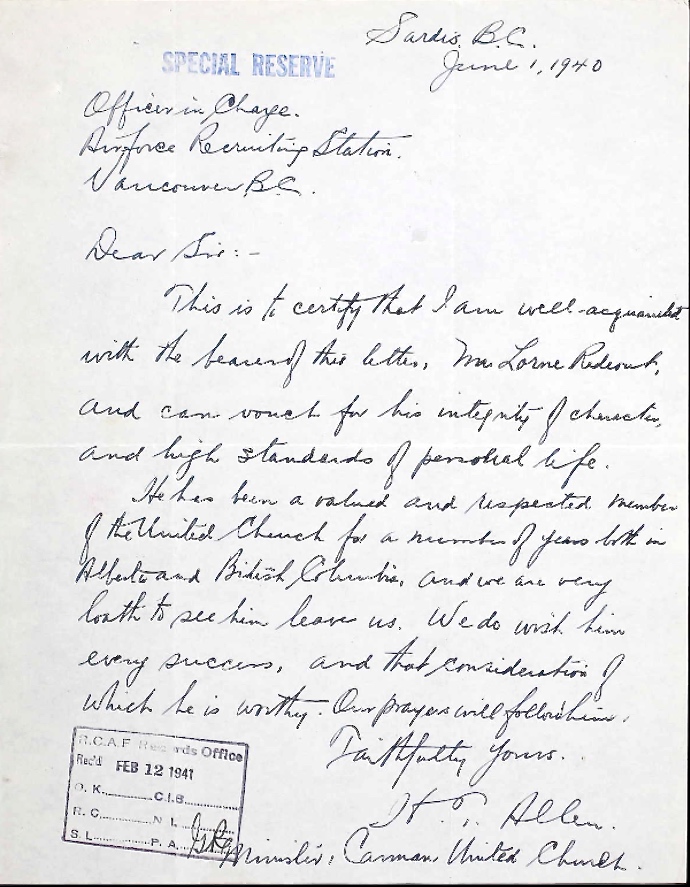 Sardis, B.C.
June 1, 1940
SPECIAL RESERVE
Officer in Charge.
Airforce Recruiting Station.
Vancouver B.C.
Dear Sir:-
This is to certify that I am well-acquainted
with the bearer of this letter, Mr. Lorne Rideout,
and can vouch for his integrity of character,
and high standards of personal life.
He has been a valued and respected member
of the United Church for a number of years both in
Alberta and British Columbia, and we are very
loath to see him leave us. We do wish him
every success, and that consideration of
which he is worthy. Our prayers will follow him.
Faithfully Yours.
H. T. Allen.
Minister, Carman United Church.
R.C.A.F. Records Office
Rec'd FEB 12 1941
O.K. C.I.B.
R.C. N.I.
S.L. P.A.